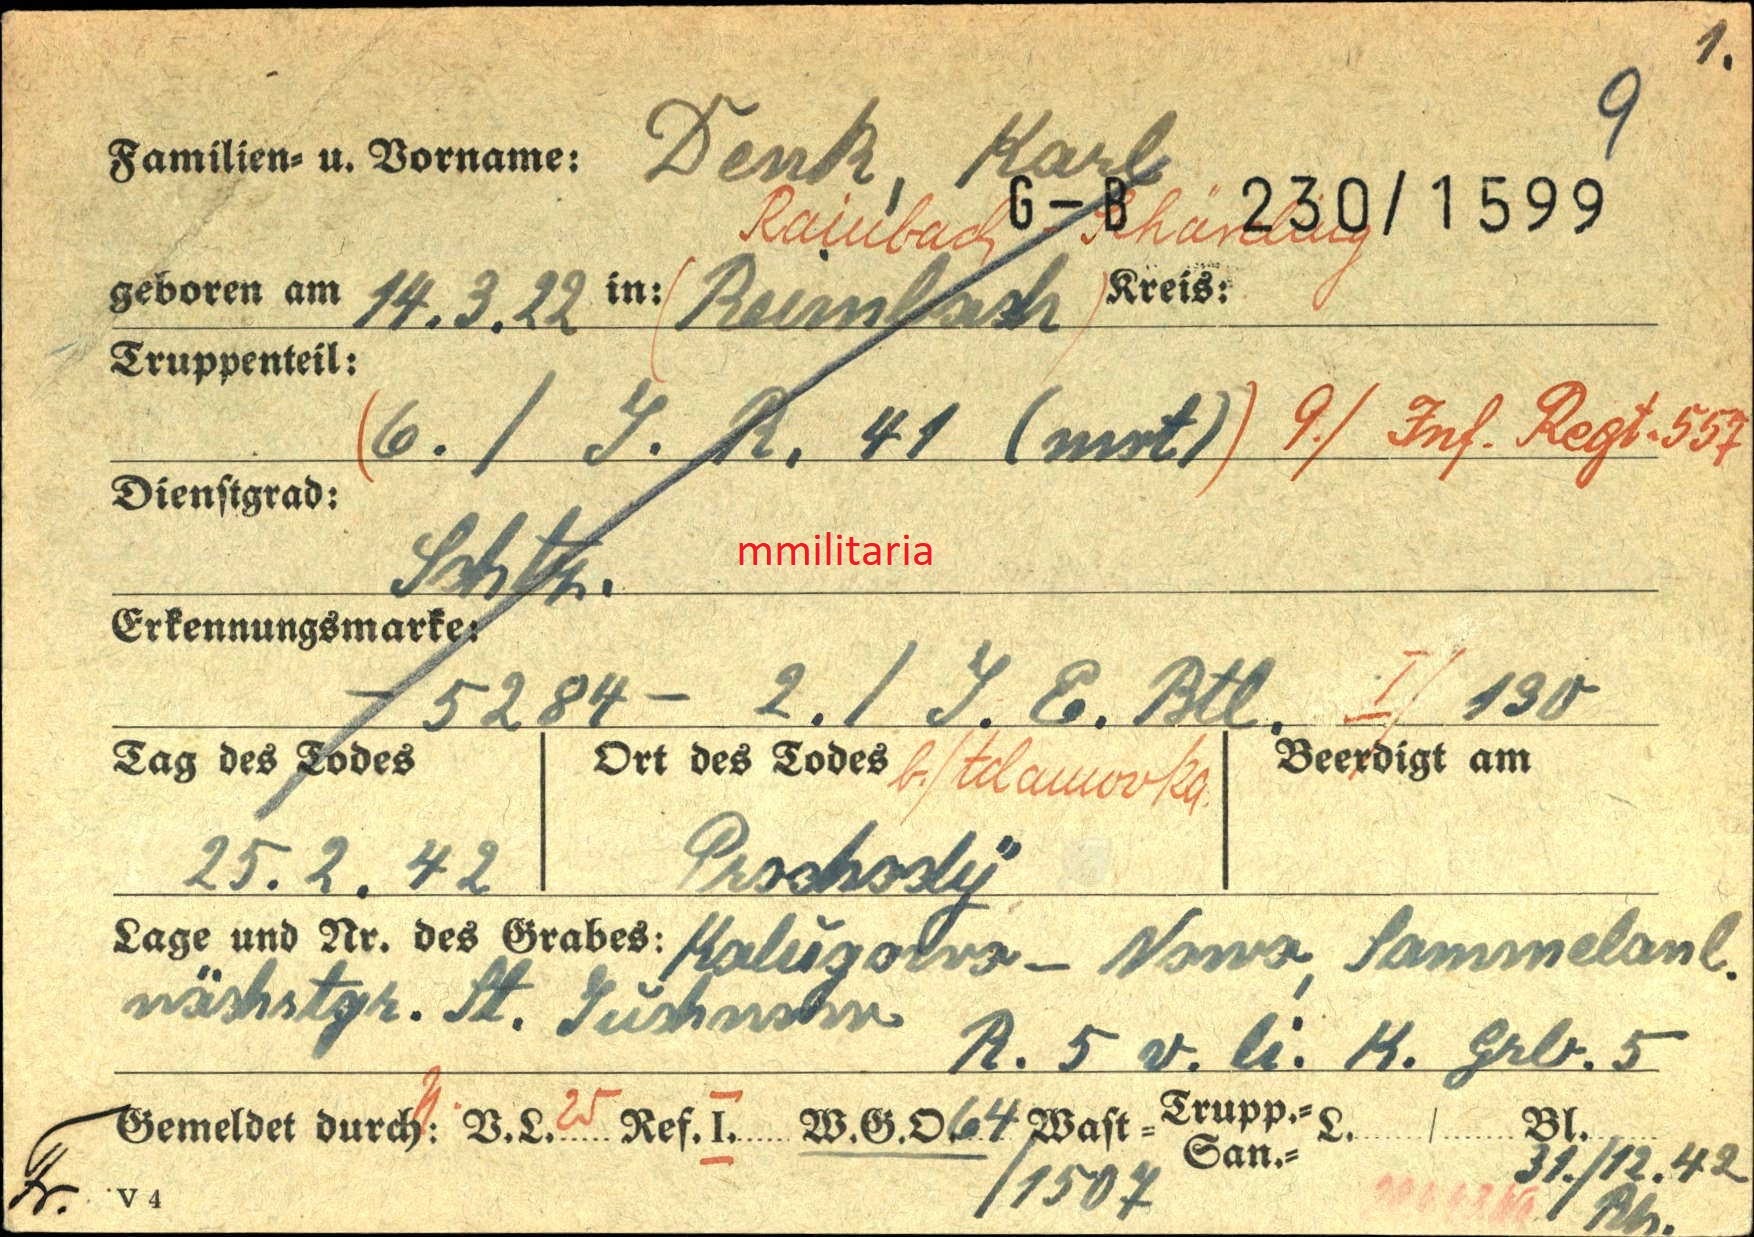 1.
9
Familien- u. Vorname: Denk, Karl
G-B 230/1599
Rainbach Schärding
geboren am 14.3.22 in: (Reimbach) Kreis:
Truppenteil:
(6. / J. R. 41 (mot.)) 9./ Inf. Regt. 557
Dienstgrad:
Schtz.
mmilitaria
Erkennungsmarke:
- 5284 - 2. / J. E. Btl. I/ 130
Tag des Todes Ort des Todes b./Adamovka. Beerdigt am
25. 2. 42 Prochody
Lage und Nr. des Grabes: Kalugowo - Nowo, Sammelanl.
nächstgr. St. Juchnow
R. 5 v. li. K. Grb. 5
Gemeldet durch: V.L. 25 Ref. I. W.G.O. 64 Wast- Trupp.- San.- L. / Bl.
/1507 31./12.42
Fr. V 4 Rh.